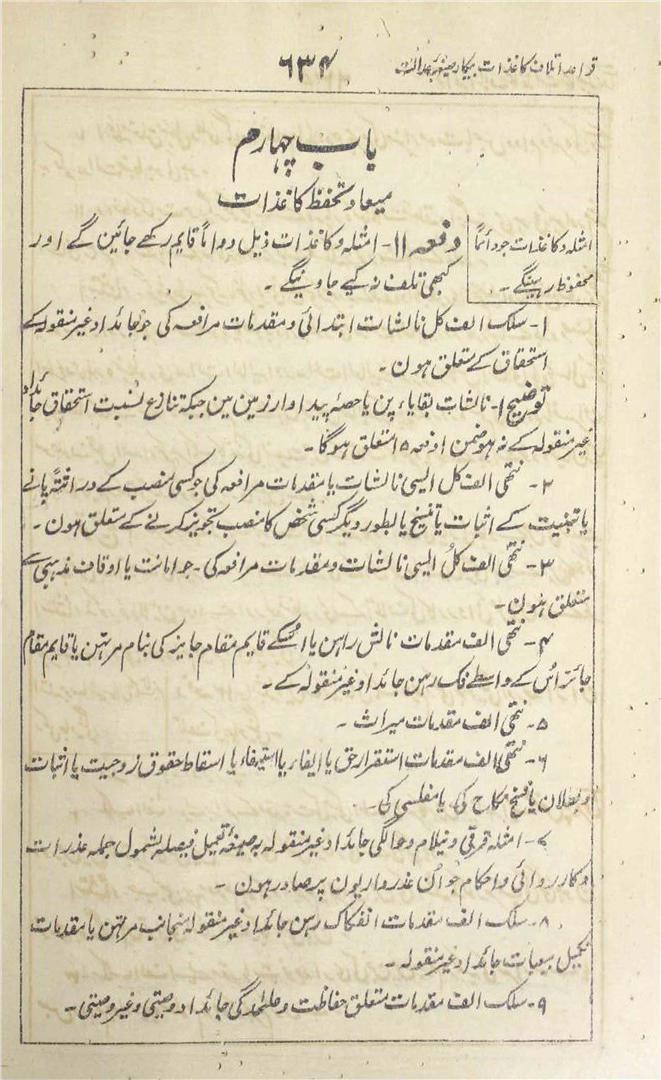 قواعد اتلاف کاغذات بیکار صیغہ عدالت ۶۳۴
باب چہارم
میعاد تحفظ کاغذات
امثلہ وکاغذات جو دائماً
محفوظ رہینگے۔
دفعہ ۱۱- امثلہ وکاغذات ذیل دواماً قایم رکھے جائین گے اور
کبھی تلف نہ کیے جاوینگے۔
۱- سلک الف کل نالشات ابتدائی و مقدمات مرافعہ کی جو جائداد غیر منقولہ کے
استحقاق کے متعلق ہون۔
توضیح ۱- نالشات بقایاء پن یا حصہ پیداوار زمین مین جبکہ تنازع نسبت استحقاق جائداد
غیر منقولہ کے نہ ہو ضمن ا دفعہ ۵ا متعلق ہوگا۔
۲- نتھی الف کل ایسی نالشات یا مقدمات مرافعہ کی جو کسی منصب کے دراثتہً پانے
یا تبنیت کے اثبات یا تنسیخ یا بطور دیگر کسی شخص کا منصب تجویز کرنے کے متعلق ہون۔
۳- نتھی الف کل ایسی نالشات و مقدمات مرافعہ کی۔ جو امانت یا اوقاف مذہبی سے
متعلق ہون۔
۴- نتھی الف مقدمات نالش راہن یا اسکے قایم مقام جایز کی بنام مرتہن یا قایم مقام
جائز اس کے واسطے فک رہن جائداد غیر منقولہ کے۔
۵- نتھی الف مقدمات میراث۔
۶- نتھی الف مقدمات استقرار حق یا ایفاء یا استیفاء یا اسقاط حقوق زوجیت یا اثبات
و بطلان یا فسخ نکاح کی یا مفلسی کی۔
۷- امثلہ قرقی و نیلام و حوالگی جائداد غیر منقولہ بہ صیغۂ تعمیل فیصلہ بشمول جملہ عذرات
و کارروائی و احکام جو ان عذرداریون پر صادر ہون۔
۸- سلک الف مقدمات انفکاک رہن جائداد غیر منقولہ منجانب مرتہن یا مقدمات
تکمیل بیعبات جائداد غیر منقولہ۔
۹- سلک الف مقدمات متعلق حفاظت و علٰحدگی جائداد وصیتی و غیر وصیتی۔